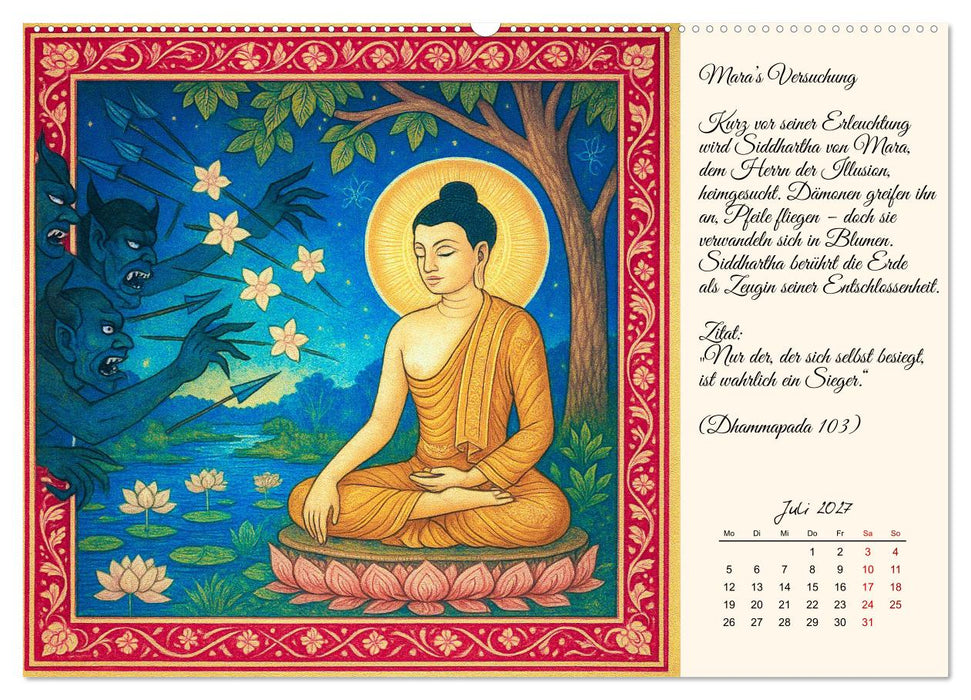 Mara's Versuchung
Kurz vor seiner Erleuchtung
wird Siddhartha von Mara,
dem Herrn der Illusion,
heimgesucht. Dämonen greifen ihn
an, Pfeile fliegen – doch sie
verwandeln sich in Blumen.
Siddhartha berührt die Erde
als Zeugin seiner Entschlossenheit.
Zitat:
„Nur der, der sich selbst besiegt,
ist wahrlich ein Sieger.“
(Dhammapada 103)
Juli 2027
Mo Di Mi Do Fr Sa So
1 2 3 4
5 6 7 8 9 10 11
12 13 14 15 16 17 18
19 20 21 22 23 24 25
26 27 28 29 30 31